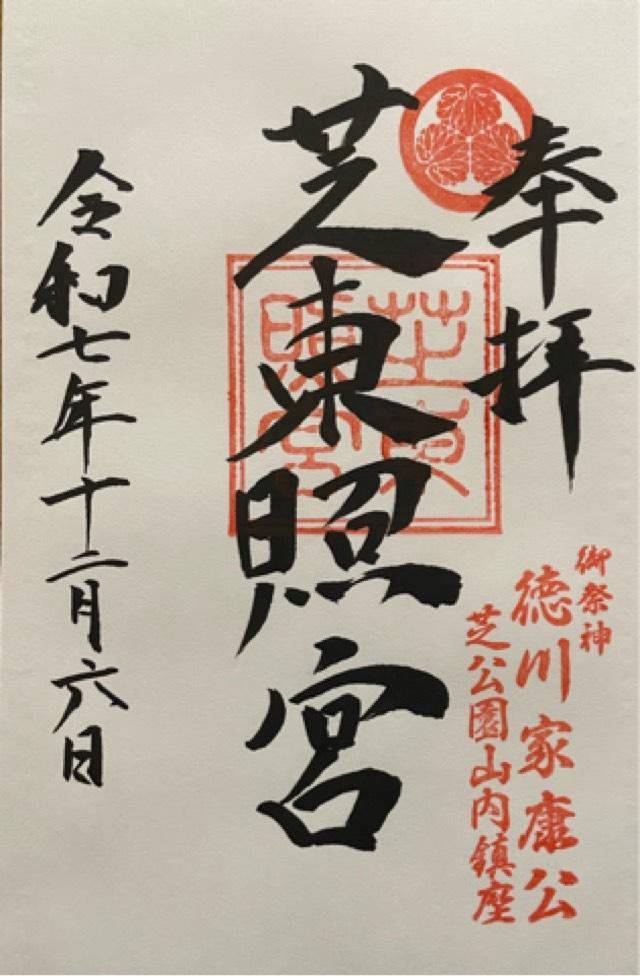 奉拝
御祭神
徳川家康公
芝公園山内鎮座
芝東照宮
芝東照宮
令和七年十二月六日